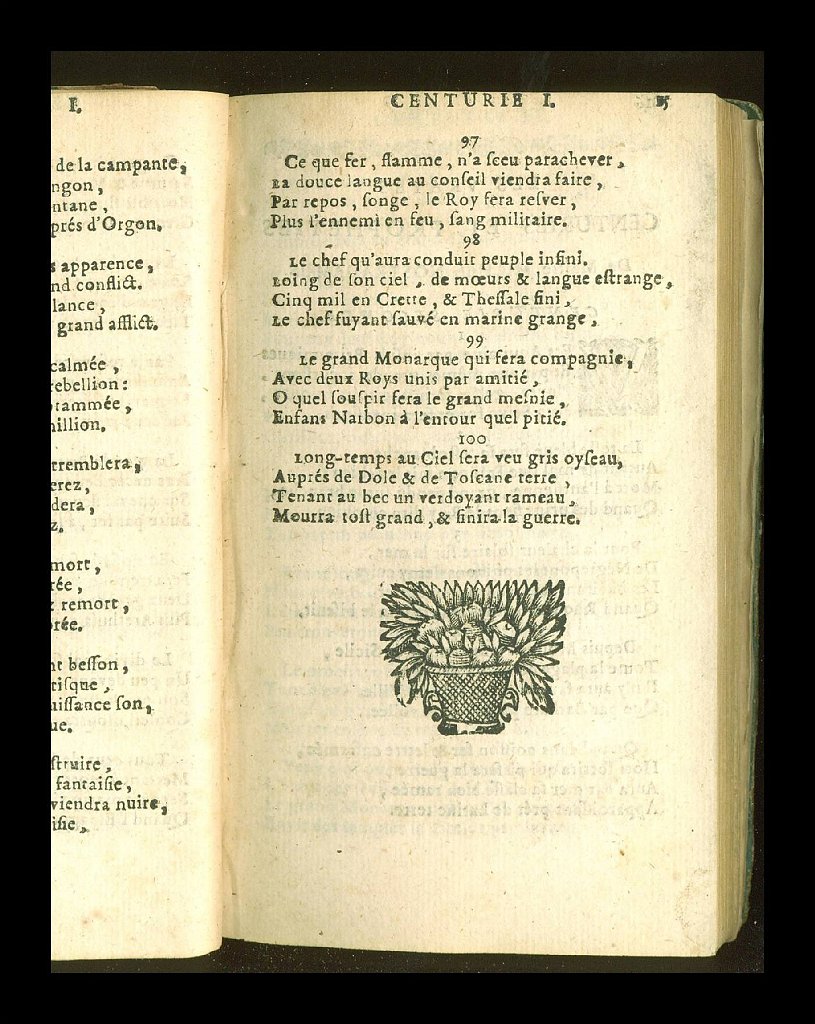 I.
de la campante,
ngon,
ntane,
prés d'Orgon.
s apparence,
nd conflict.
lance,
grand afflict.
calmée,
rebellion:
tammée,
illion.
tremblera,
erez,
dera,
z.
mort,
rée,
remort,
rée.
nt besson,
tisque,
uissance son,
ue.
struire,
fantaisie,
viendra nuire,
isie,
CENTURIE I.
97
Ce que fer, flamme, n'a sceu parachever,
La douce langue au conseil viendra faire,
Par repos, songe, le Roy fera resver,
Plus l'ennemi en feu, sang militaire.
98
Le chef qu'aura conduit peuple infini.
Loing de son ciel, de mœurs & langue estrange,
Cinq mil en Crette, & Thessale fini,
Le chef fuyant sauvé en marine grange,
99
Le grand Monarque qui fera compagnie,
Avec deux Roys unis par amitié,
O quel souspir fera le grand mesnie,
Enfans Narbon à l'entour quel pitié.
100
Long-temps au Ciel sera veu gris oyseau,
Auprés de Dole & de Toscane terre,
Tenant au bec un verdoyant rameau,
Mourra tost grand, & finira la guerre.